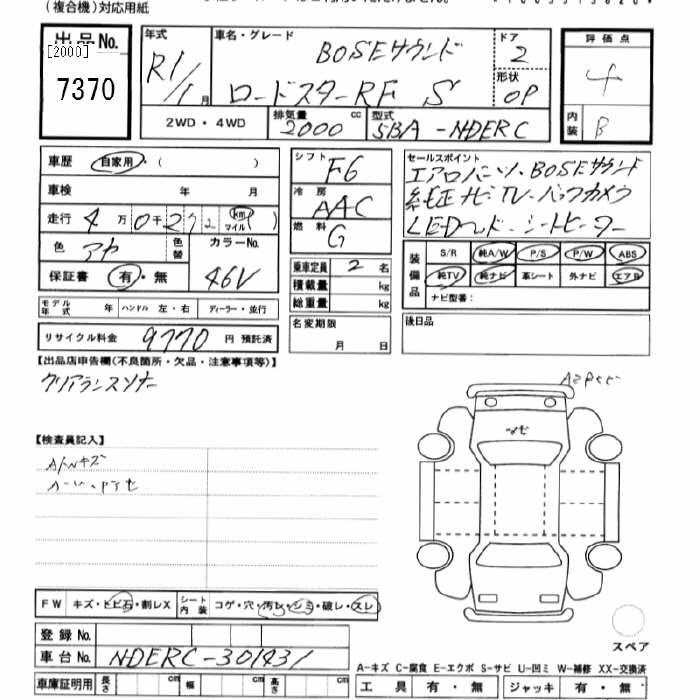 (複合機)対応用紙
出品No.
[2000]
7370
年式 R1/1月
車名・グレード BOSEサウンド
ロードスターRF S
ドア 2
形状 OP
評価点 4
内装 B
2WD・4WD
排気量 2000 cc
型式 5BA-NDERC
車歴 自家用・( )
車検 年 月
走行 4万0千272 km マイル ( )
色 アカ
色替
カラーNo. 46V
保証書 有・無
モデル年式 年 ハンドル 左・右 ディーラー・並行
リサイクル料金 9770円 預託済
シフト F6
冷房 AAC
燃料 G
乗車定員 2 名
積載量 kg
総重量 kg
名変期限 月 日
セールスポイント
エアロパーツ・BOSEサウンド
純正ナビTV・バックカメラ
LEDヘッド・シートヒーター
装備品 S/R 純A/W P/S P/W ABS
純TV 純ナビ 革シート 外ナビ エアB
ナビ型番:
後日品
【出品店申告欄(不良箇所・欠品・注意事項等)】
クリアランスソナー
【検査員記入】
FW キズ・トビ石・割レX シート内装 コゲ・穴・汚レ・シミ・破レ・スレ
登録No.
車台No. NDERC-301431
車庫証明用 長さ cm 幅 cm 高さ cm
スペア
A-キズ C-腐食 E-エクボ S-サビ U-凹ミ W-補修 XX-交換済
工具 有・無 ジャッキ 有・無